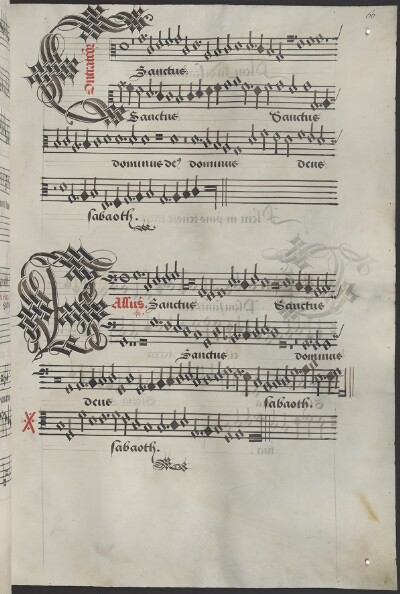 66
Contratenor
Sanctus
Sanctus Sanctus
dominus de9 dominus deus
sabaoth.
Bassus. Sanctus Sanctus
Sanctus dominus
deus sabaoth.
sabaoth.